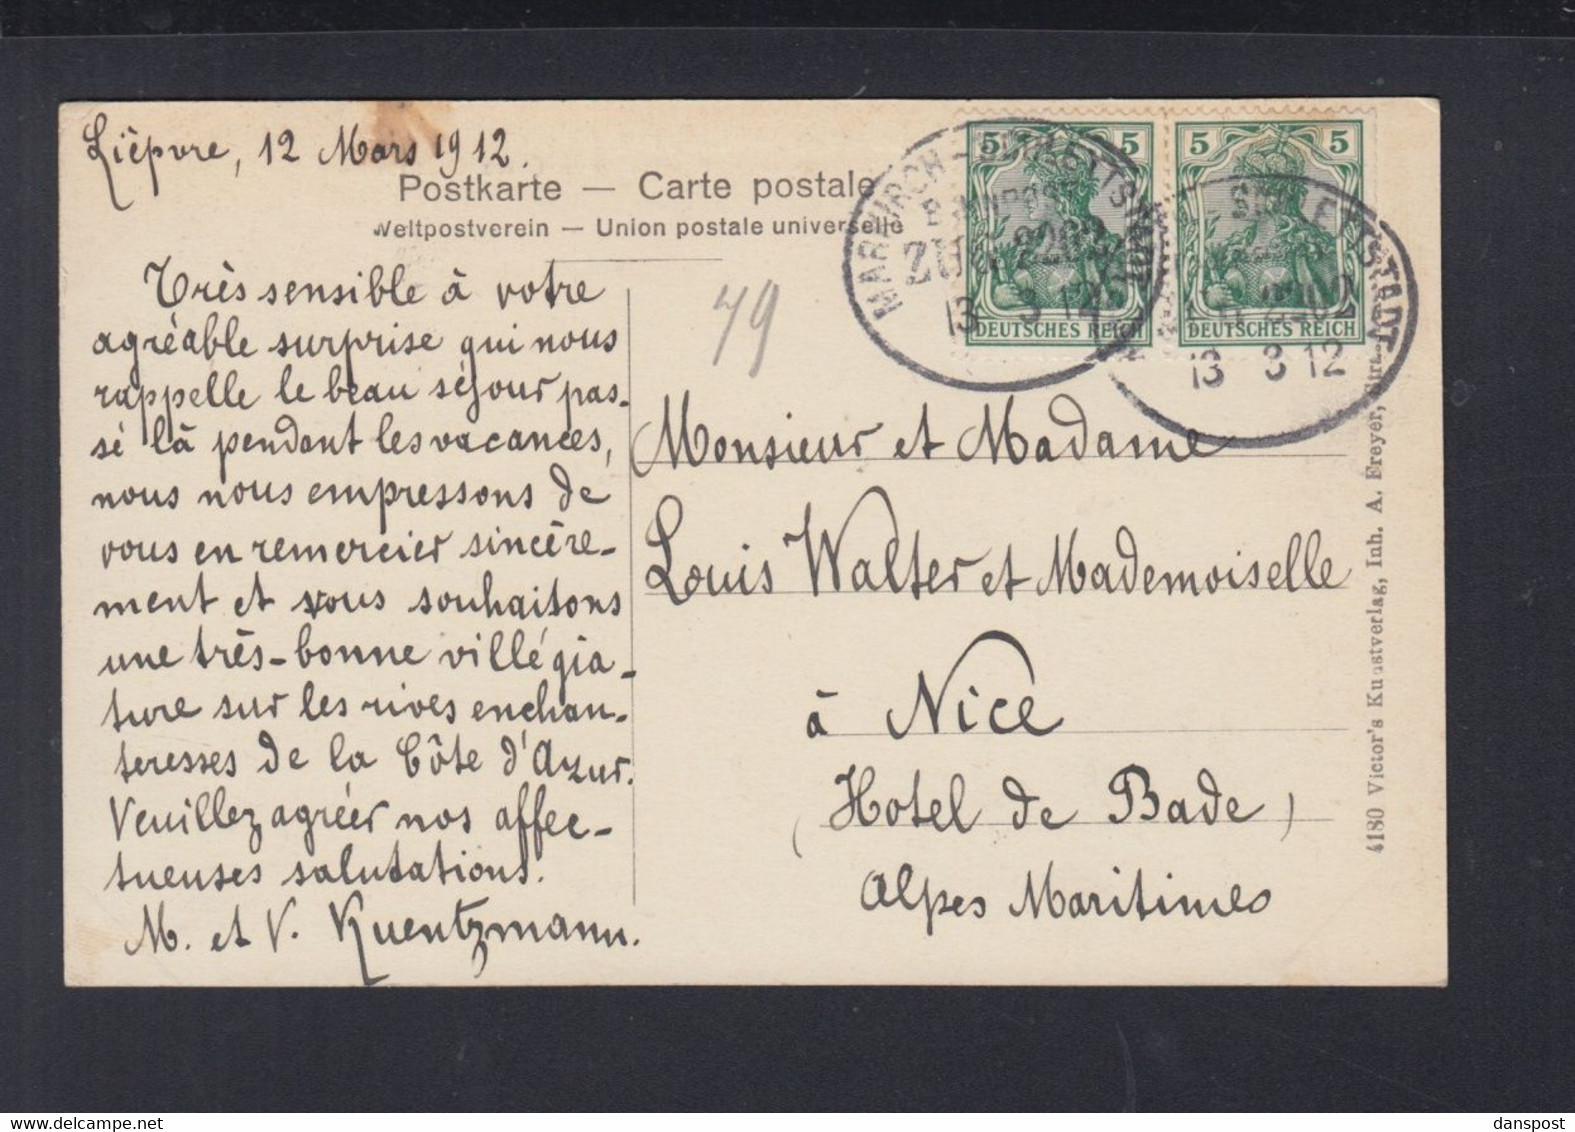 Lièpvre, 12 Mars 1912.
Postkarte — Carte postale
Weltpostverein — Union postale universelle
Très sensible à votre
agréable surprise qui nous
rappelle le beau séjour pas-
sé là pendant les vacances,
nous nous empressons de
vous en remercier sincère-
ment et vous souhaitons
une très-bonne villégia-
ture sur les rives enchan-
teresses de la Côte d'Azur.
Veuillez agréer nos affec-
tueuses salutations.
M. et V. Kuentzmann.
79
5 5
DEUTSCHES REICH
5 5
DEUTSCHES REICH
MARKIRCH - SCHLETTSTADT
BAHNPOST
ZUG
13 3 12
SCHLETTSTADT
13 3 12
Monsieur et Madame
Louis Walter et Mademoiselle
à Nice
(Hotel de Bade)
Alpes Maritimes
4180 Victor's Kunstverlag, Inh. A. Freyer,
danspost